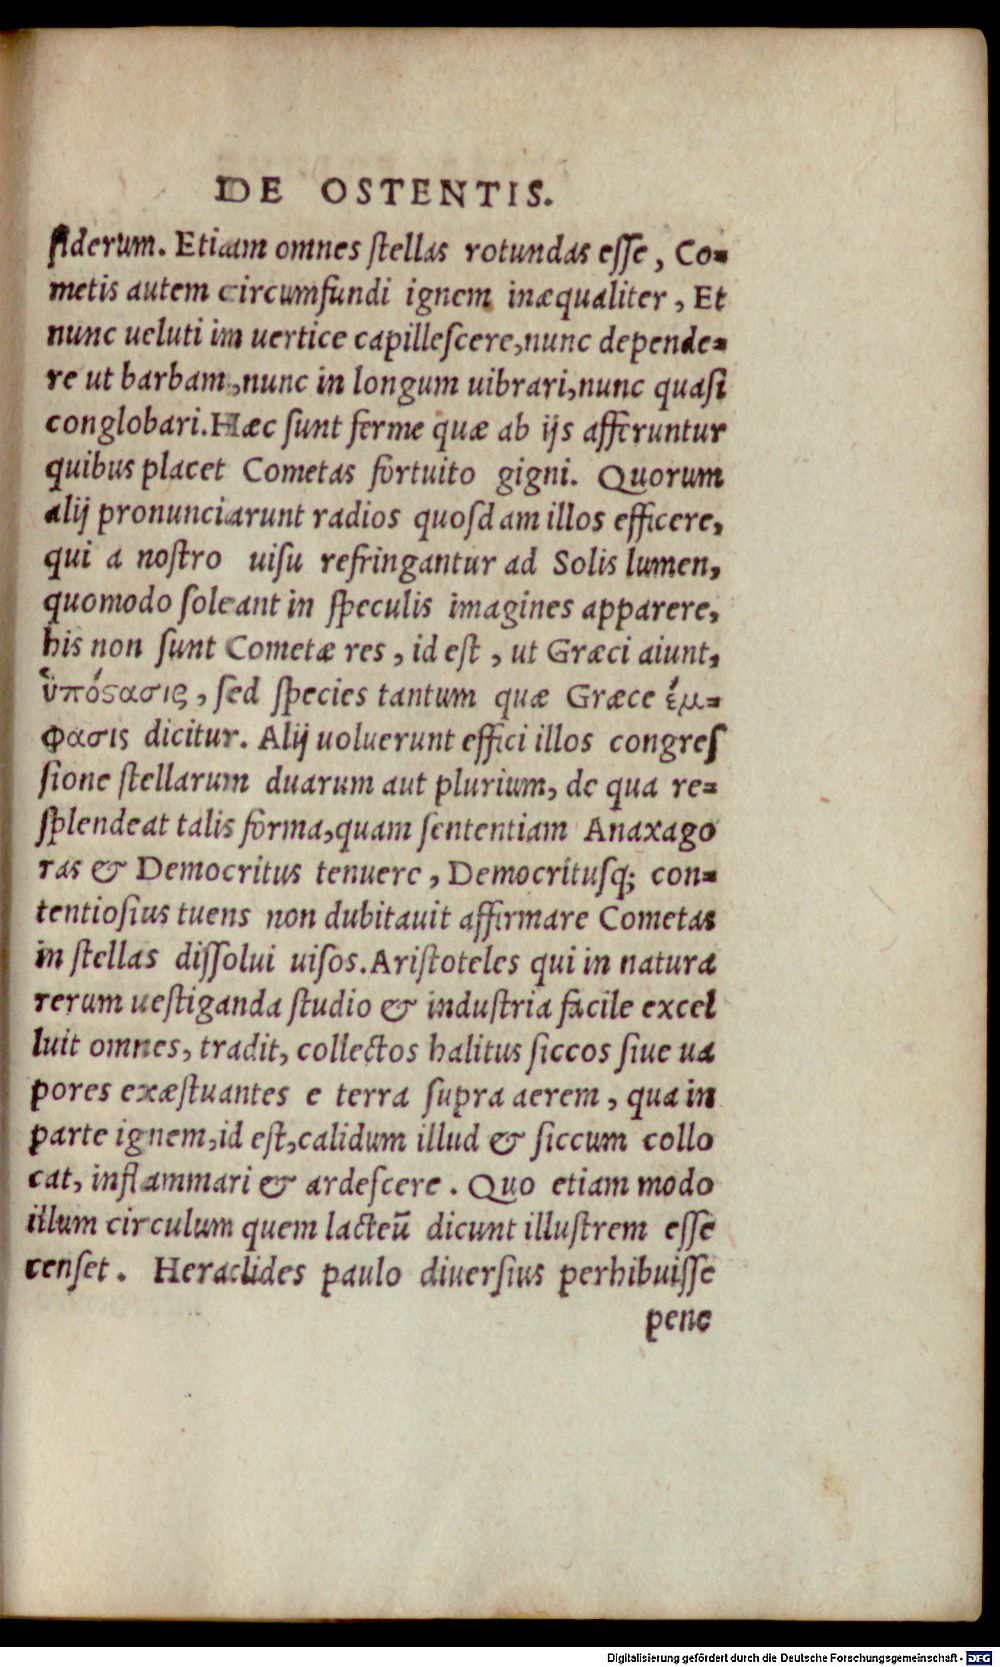 DE OSTENTIS.
ſiderum. Etiam omnes ſtellas rotundas eſſe, Co-
metis autem circumfundi ignem inæqualiter, Et
nunc ueluti im uertice capilleſcere,nunc depende-
re ut barbam,nunc in longum uibrari,nunc quaſi
conglobari.Hæc ſunt ferme quæ ab ijs afferuntur
quibus placet Cometas fortuito gigni. Quorum
alij pronunciarunt radios quoſdam illos efficere,
qui a noſtro uiſu refringantur ad Solis lumen,
quomodo ſoleant in ſpeculis imagines apparere,
his non ſunt Cometæ res, id eſt, ut Græci aiunt,
ὑπόϛασις, ſed ſpecies tantum quæ Græce ἔμ-
φασις dicitur. Alij uoluerunt effici illos congreſ
ſione ſtellarum duarum aut plurium, de qua re-
ſplendeat talis forma,quam ſententiam Anaxago
ras & Democritus tenuere, Democrituſq; con-
tentioſius tuens non dubitauit affirmare Cometas
in ſtellas diſſolui uiſos.Ariſtoteles qui in natura
rerum ueſtiganda ſtudio & induſtria facile excel
luit omnes, tradit, collectos halitus ſiccos ſiue ua
pores exæſtuantes e terra ſupra aerem, qua in
parte ignem,id eſt,calidum illud & ſiccum collo
cat, inflammari & ardeſcere. Quo etiam modo
illum circulum quem lacteũ dicunt illuſtrem eſſe
cenſet. Heraclides paulo diuerſius perhibuiſſe
pene
Digitalisierung gefördert durch die Deutsche Forschungsgemeinschaft - DFG